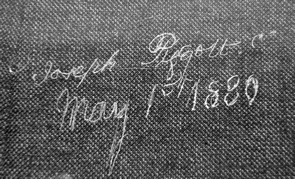 Joseph Pigott
May 1st 1880